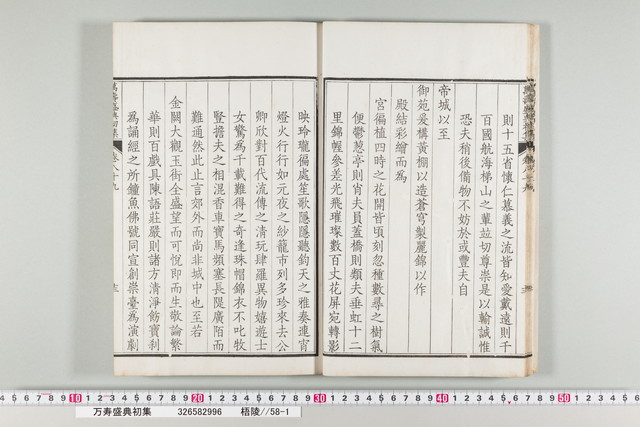 則十五省懷仁慕義之流皆知愛戴遠則千
百國航海梯山之輩竝切尊崇是以輸誠惟
恐夫稍後備物不妨於或豐夫自
帝城以至
御苑爰構黃棚以造蒼穹製麗錦以作
殿結彩繪而為
宮徧植四時之花開皆頃刻忽種數尋之樹氣
便鬱葱亭則肖夫員蓋橋則類夫垂虹十二
里錦幄參差光飛璀璨數百丈花屏宛轉影
映玲瓏徧處笙歌隱隱聽鈞天之雅奏連宵
燈火行行如元夜之紗籠市列多珍來去公
卿欣對百代流傳之清玩肆羅異物嬉遊士
女驚為千載難得之奇逢珠帽錦衣不叱牧
豎擔夫之相混香車寶馬頻塞長隄廣陌而
難通然此止言郊外而尚非城中也至若
金闕大觀玉街全盛望而可悅即而生敬論繁
華則百戲具陳語莊嚴則諸方清淨飭寶刹
為誦經之所鐘魚佛號同宣創崇臺為演劇
萬壽盛典初集 卷八十九
10 20 30 40 50
万寿盛典初集 326582996 梧陵//58-1